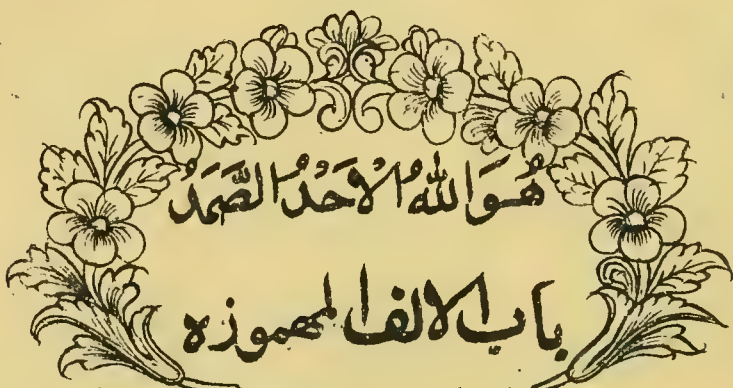 هُوَ اللّٰهُ الْاَحَدُ الصَّمَدُ
باب الالف المهموزه